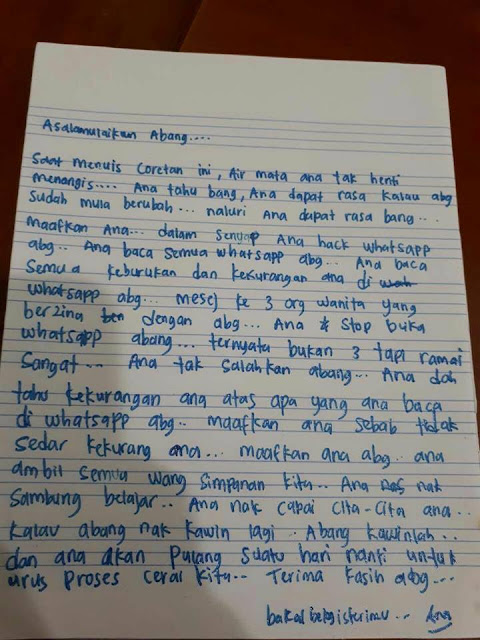 Asalamulaikum Abang....
Saat menuis coretan ini, Air mata ana tak henti
menangis.... Ana tahu bang, Ana dapat rasa kalau abg
sudah mula berubah... naluri Ana dapat rasa bang...
Maafkan Ana... dalam senyap Ana hack whatsapp
abg.. Ana baca semua whatsapp abg.. Ana baca
semua keburukan dan kekurangan ana di
whatsapp abg... mesej ke 3 org wanita yang
berzina dengan abg... Ana stop buka
whatsapp abang.... ternyata bukan 3 tapi ramai
sangat... Ana tak salahkan abang... Ana dah
tahu kekurangan ana atas apa yang ana baca
di whatsapp abg.. maafkan ana sebab tidak
sedar kekurang ana... maafkan ana abg.. ana
ambil semua wang simpanan kita.. Ana nak
sambung belajar.. Ana nak capai cita-cita ana..
Kalau abang nak kawin lagi.. Abang kawinlah..
dan ana akan pulang suatu hari nanti untuk
urus proses cerai kita.. Terima Kasih abg...
bakal bekas isterimu...